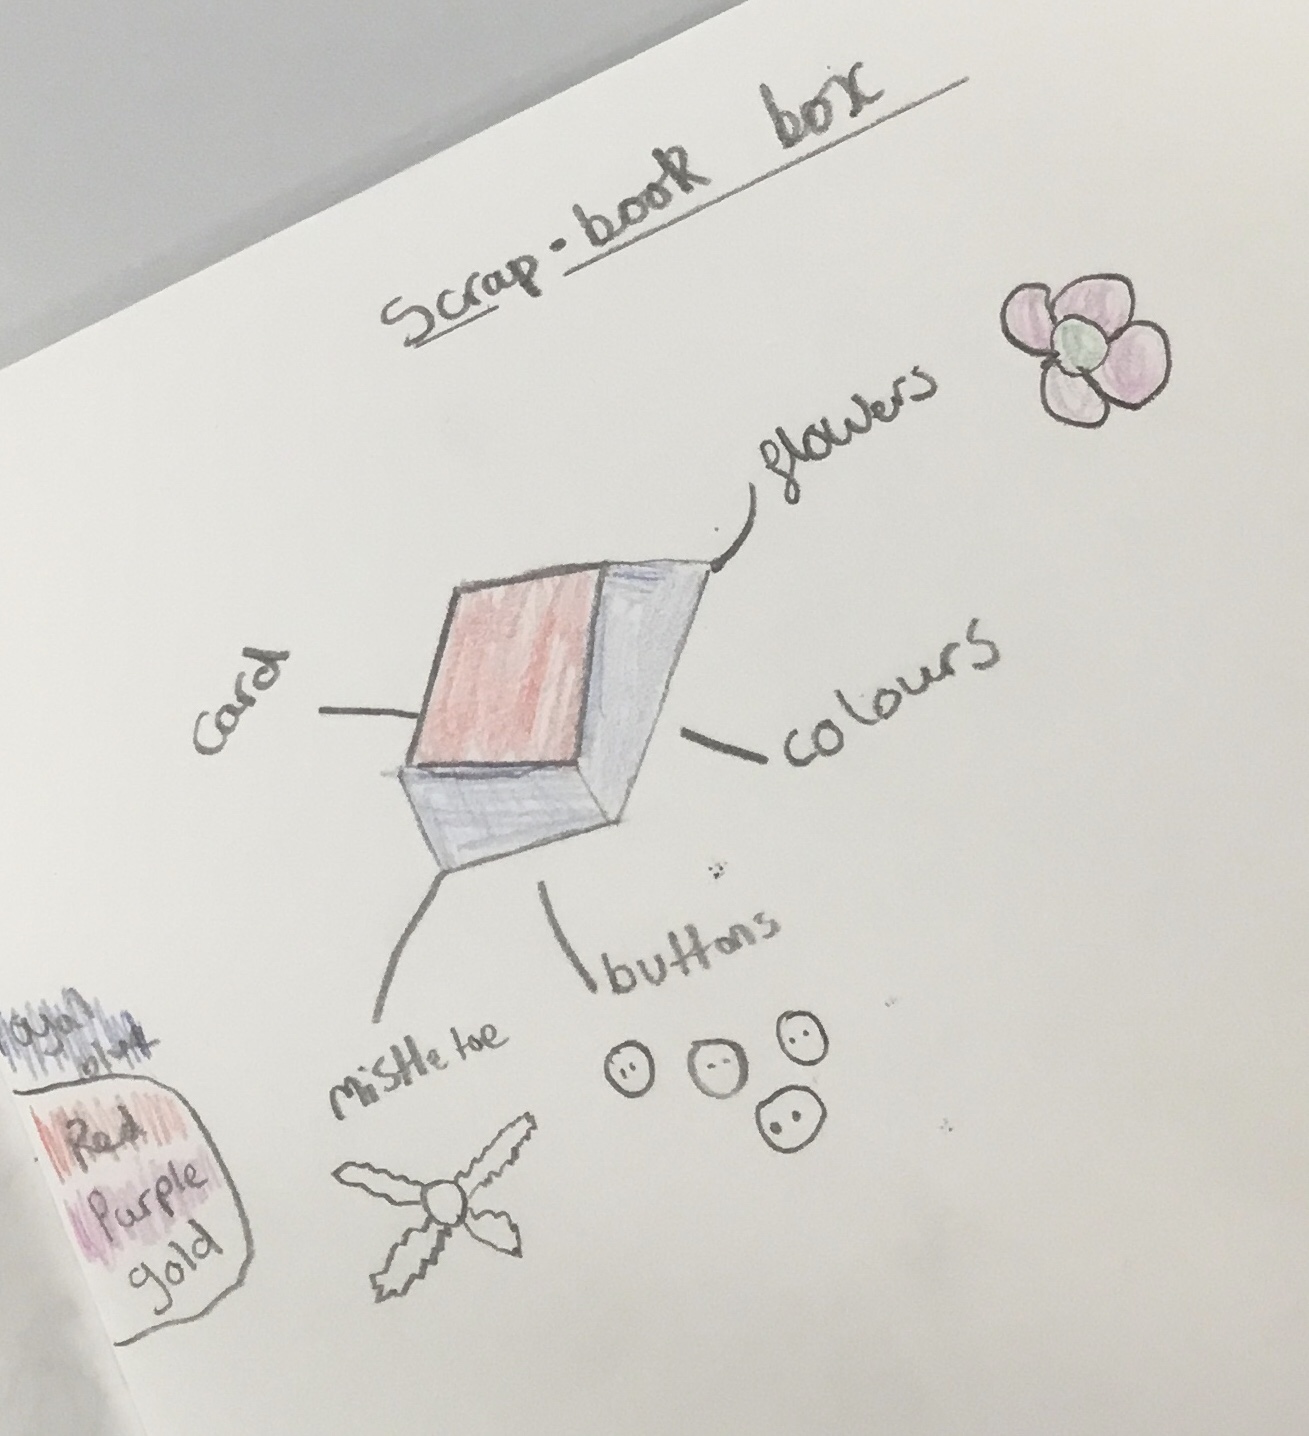 Scrap-book box
flowers
card
colours
buttons
mistletoe
Red
Purple
gold